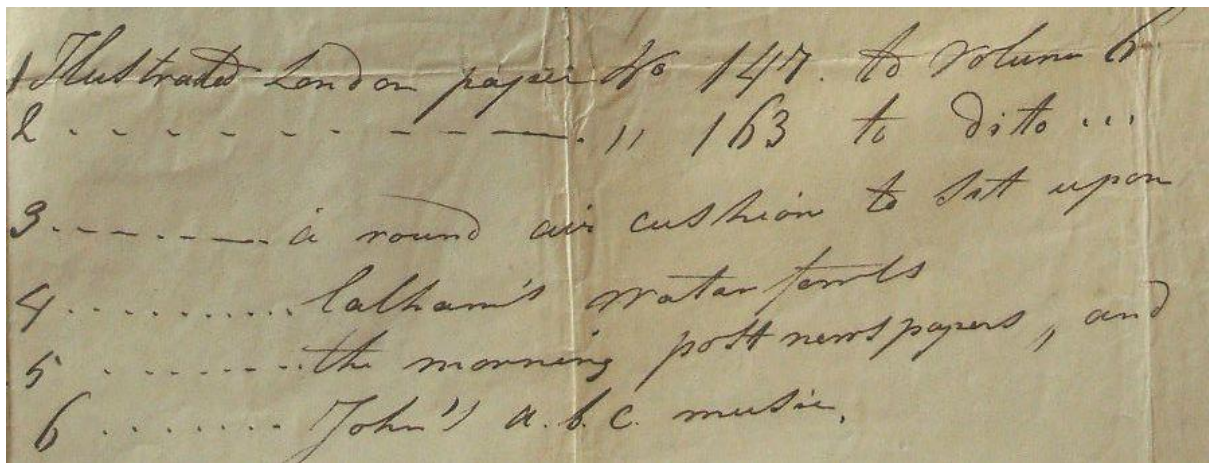 1 Illustrated London paper No 147. to Volume 6
2 . . . . . . . . . . . . . " 163 to ditto ...
3 . . . . . . . . a round air cushion to sit upon
4 . . . . . . . . . . Latham's water fowls
5 . . . . . . . . the morning post newspapers, and
6 . . . . . . . John's a.b.c. music.